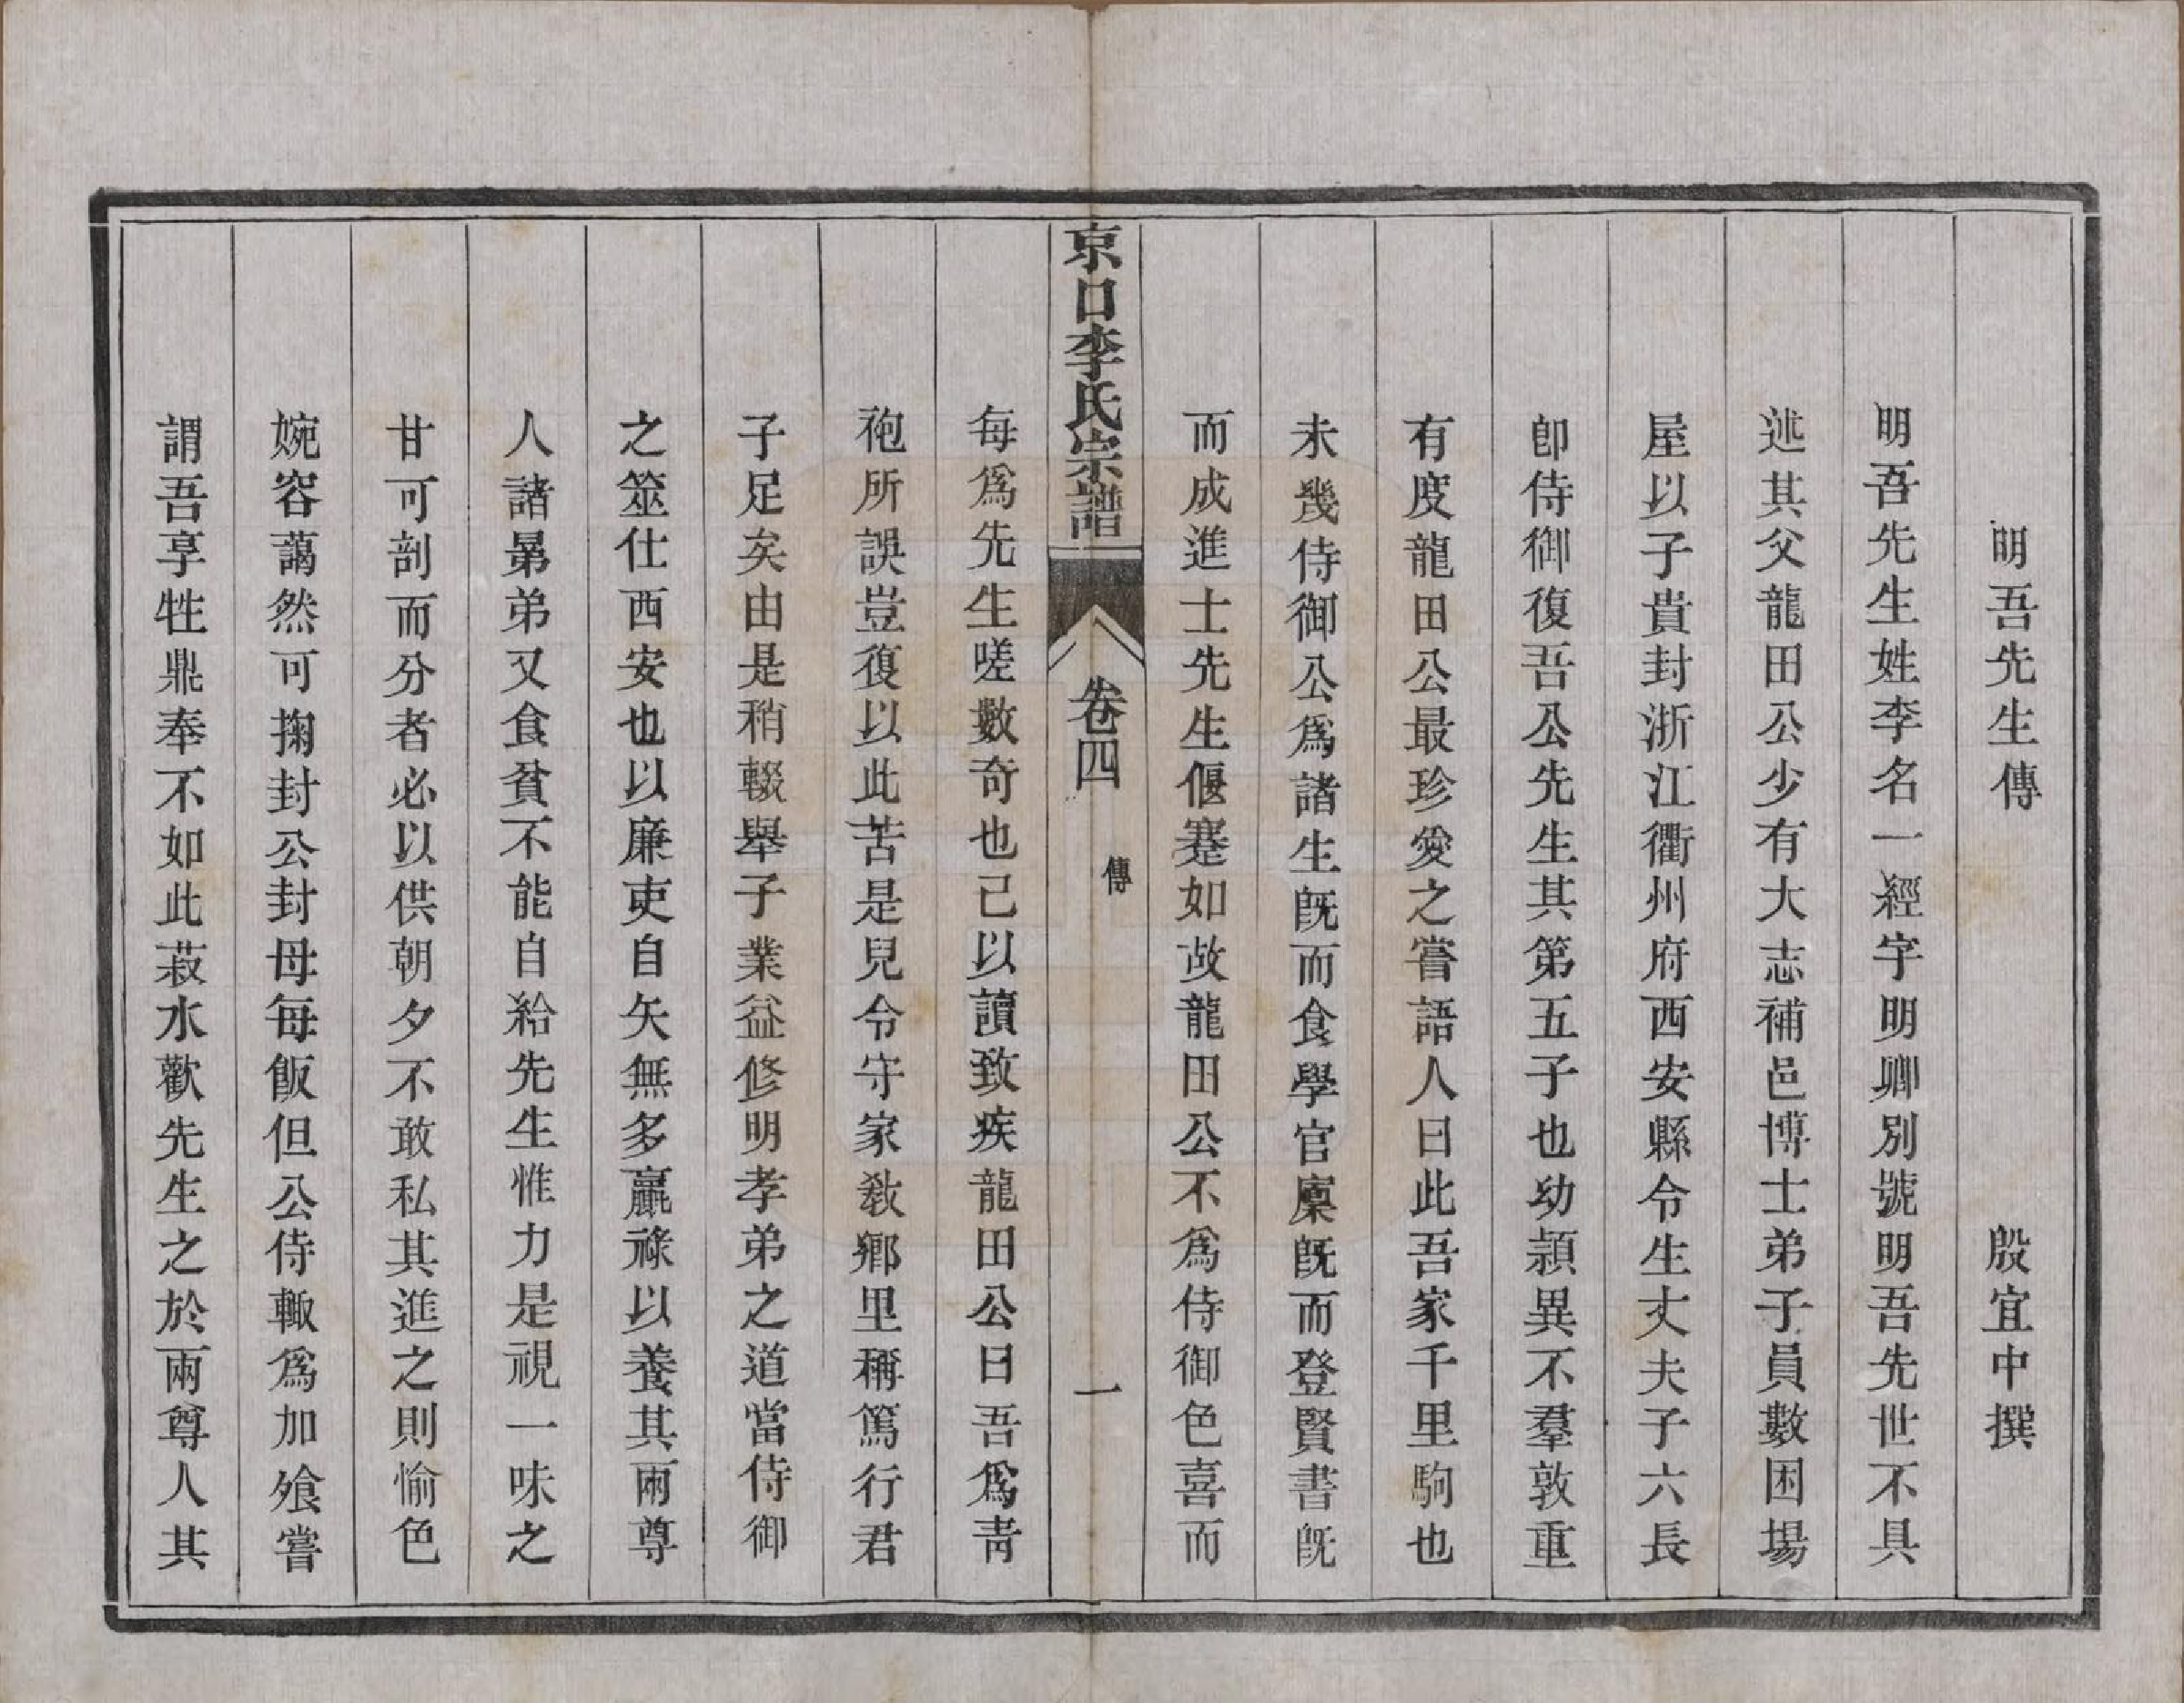 明吾先生傳　殷宜中撰
明吾先生姓李名一經字明卿別號明吾先世不具
述其父龍田公少有大志補邑博士弟子員數困場
屋以子貴封浙江衢州府西安縣令生丈夫子六長
卽侍御復吾公先生其第五子也幼穎異不羣敦重
有度龍田公最珍愛之嘗語人曰此吾家千里駒也
未幾侍御公爲諸生旣而食學官廩旣而登賢書旣
而成進士先生偃蹇如故龍田公不爲侍御色喜而
京口李氏宗譜　卷四　傳　一
每爲先生嗟數奇也己以讀致疾龍田公曰吾爲靑
袍所誤豈復以此苦是兒令守家敎鄉里稱篤行君
子足矣由是稍輟舉子業益修明孝弟之道當侍御
之筮仕西安也以廉吏自矢無多贏祿以養其兩尊
人諸晜弟又食貧不能自給先生惟力是視一味之
甘可剖而分者必以供朝夕不敢私其進之則愉色
婉容藹然可掬封公封母每飯但公侍輙爲加飱嘗
謂吾享牲鼎奉不如此菽水歡先生之於兩尊人其